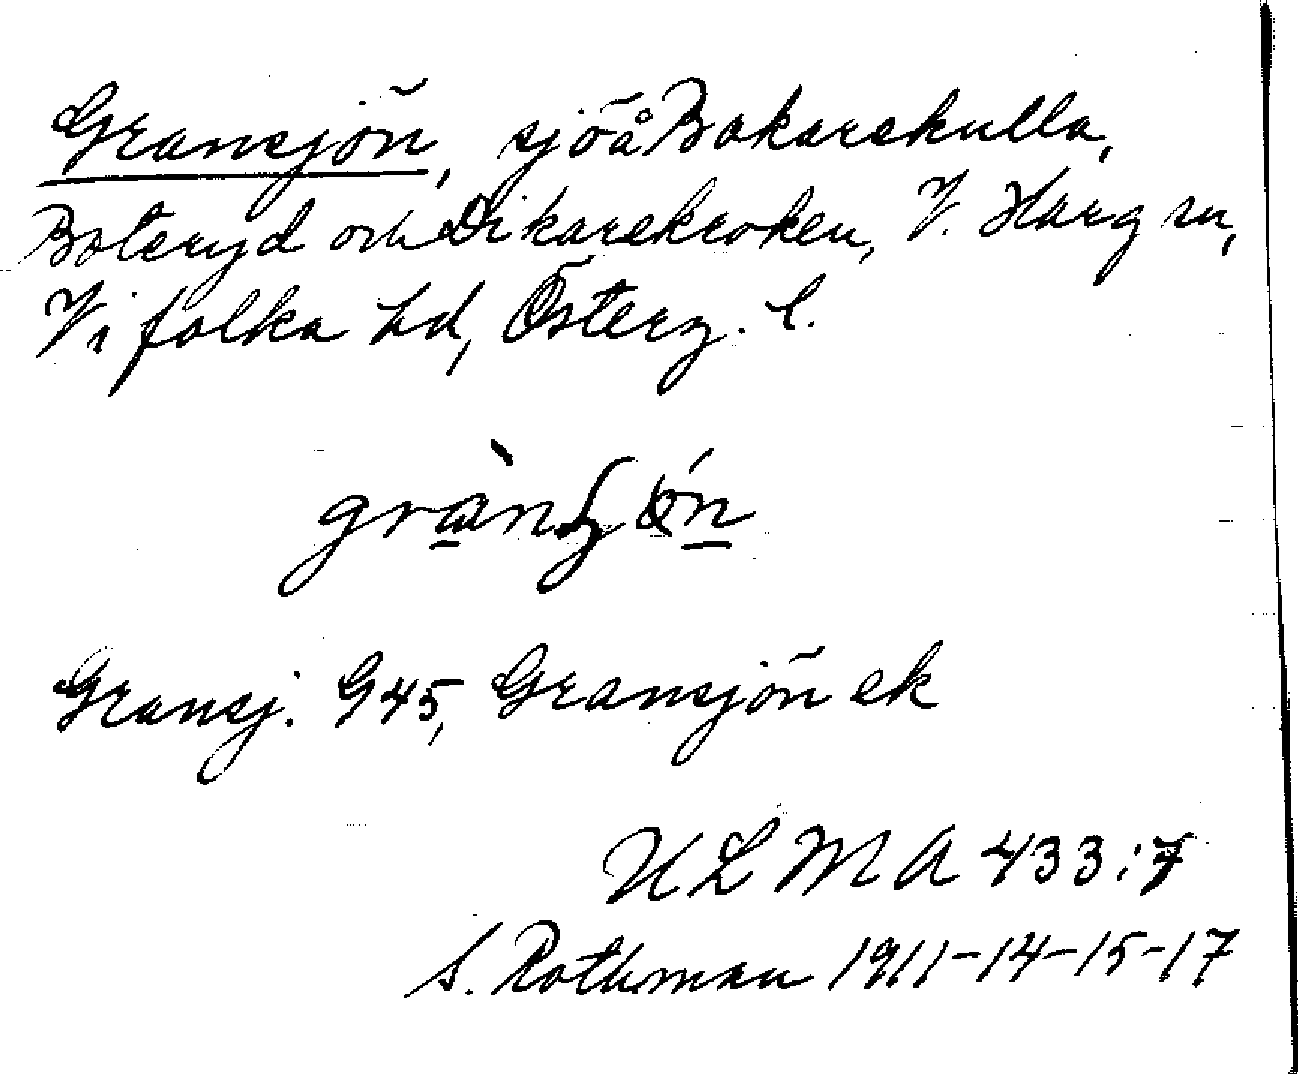 Gransjön, sjö å Bakarekulla,
Boteryd och Dikarekroken, V. Harg sn,
Vifolka hd, Österg. l.
Gransj. G45, Gransjön ek
ULMA 433:7
S. Rothman 1911-14-15-17